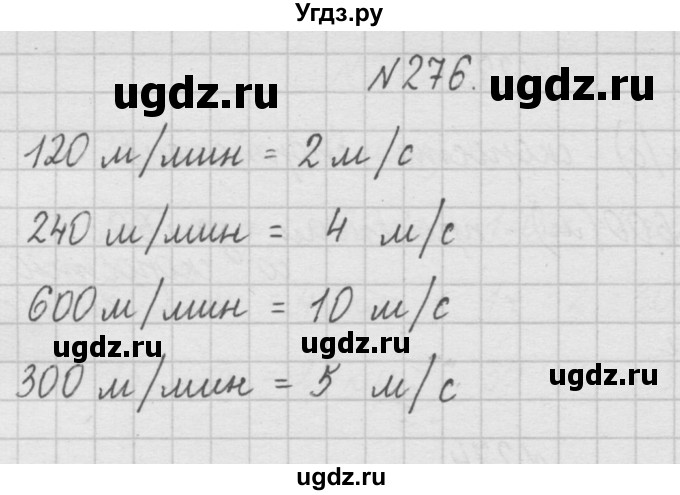 Угдз.ру
№276.
ugdz.ru
ugdz.ru
120 м/мин = 2 м/с
240 м/мин = 4 м/с
600 м/мин = 10 м/с
ugdz.ru
ugdz.ru
ugdz.ru
300 м/мин = 5 м/с
ugdz.ru